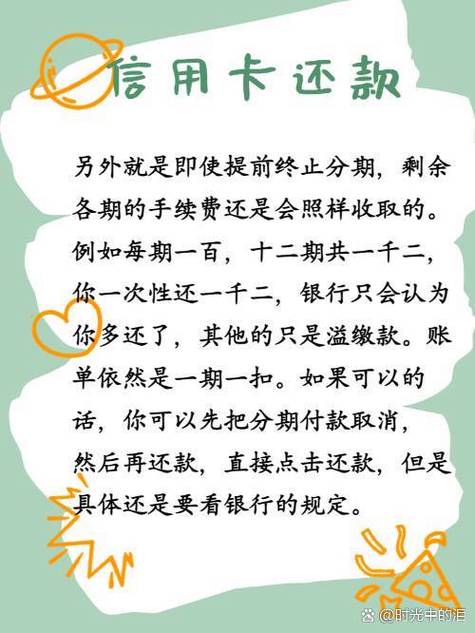 信用卡还款
另外就是即使提前终止分期，剩余
各期的手续费还是会照样收取的。
例如每期一百，十二期共一千二，
你一次性还一千二，银行只会认为
你多还了，其他的只是溢缴款。账
单依然是一期一扣。如果可以的
话，你可以先把分期付款取消，
然后再还款，直接点击还款，但是
具体还是要看银行的规定。
时光中的泪